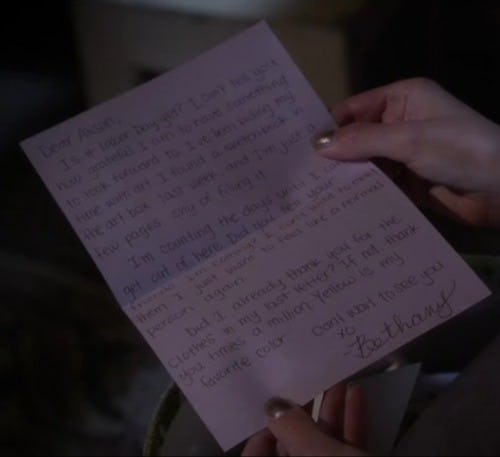 Dear Alison,
Is it Labor Day yet? I can't tell you
how grateful I am to have something
to look forward to. I've been biding my
time with art. I found a sketchbook in
the art box last week and I'm just a
few pages shy of filling it.
I'm counting the days until I can
get out of here. Did you tell your
friends I'm coming? I can't wait to meet
them. I just want to feel like a normal
person again.
Did I already thank you for the
clothes in my last letter? If not, thank
you times a million. Yellow is my
favorite color.
Can't wait to see you
xo
-Bethany